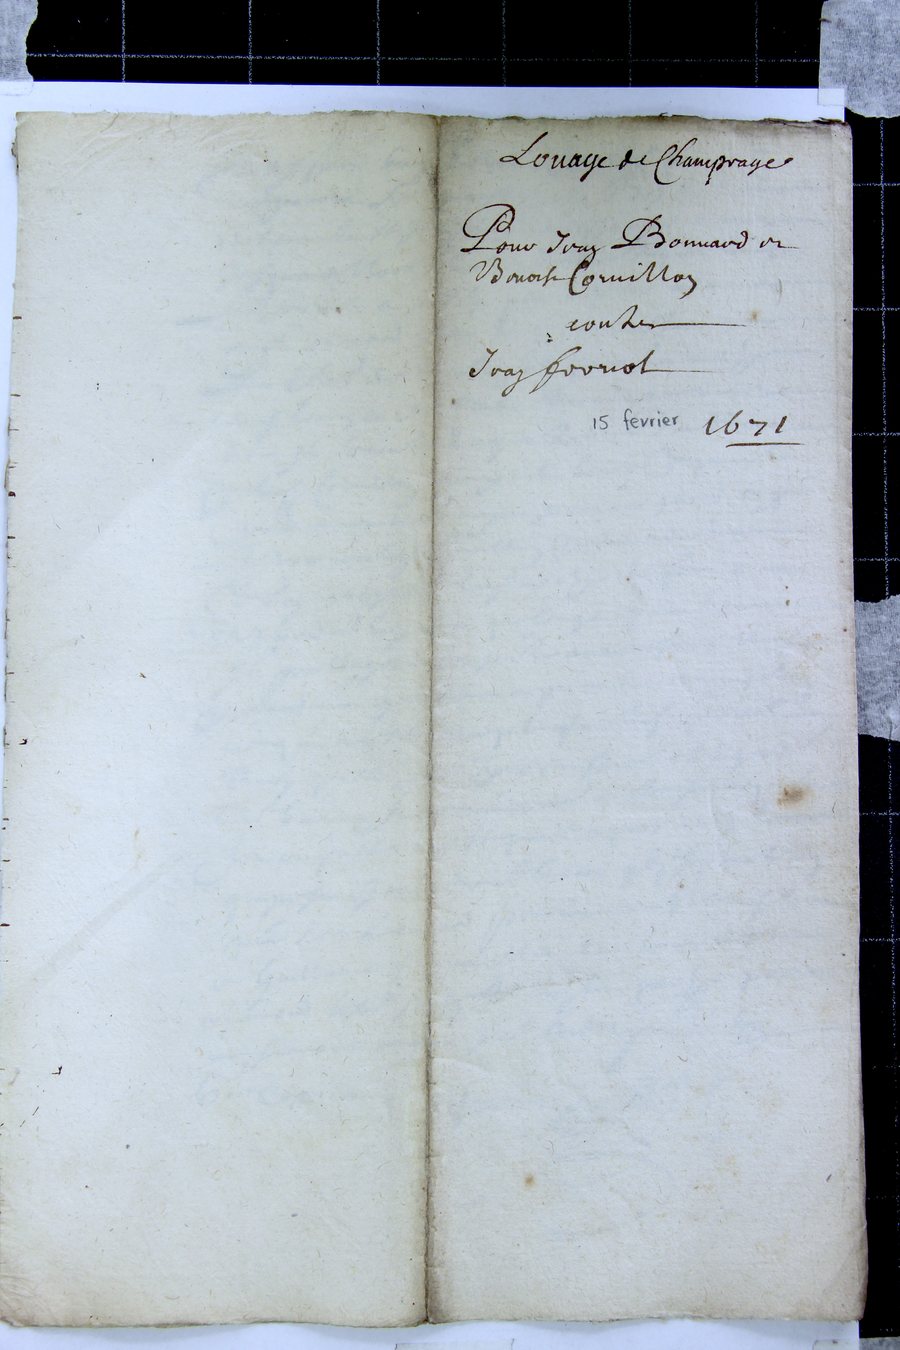 Louage de Champrage
Pour Jean Bonnard et
Benoist Cornillon
contre
Jean ferriot
15 fevrier 1671